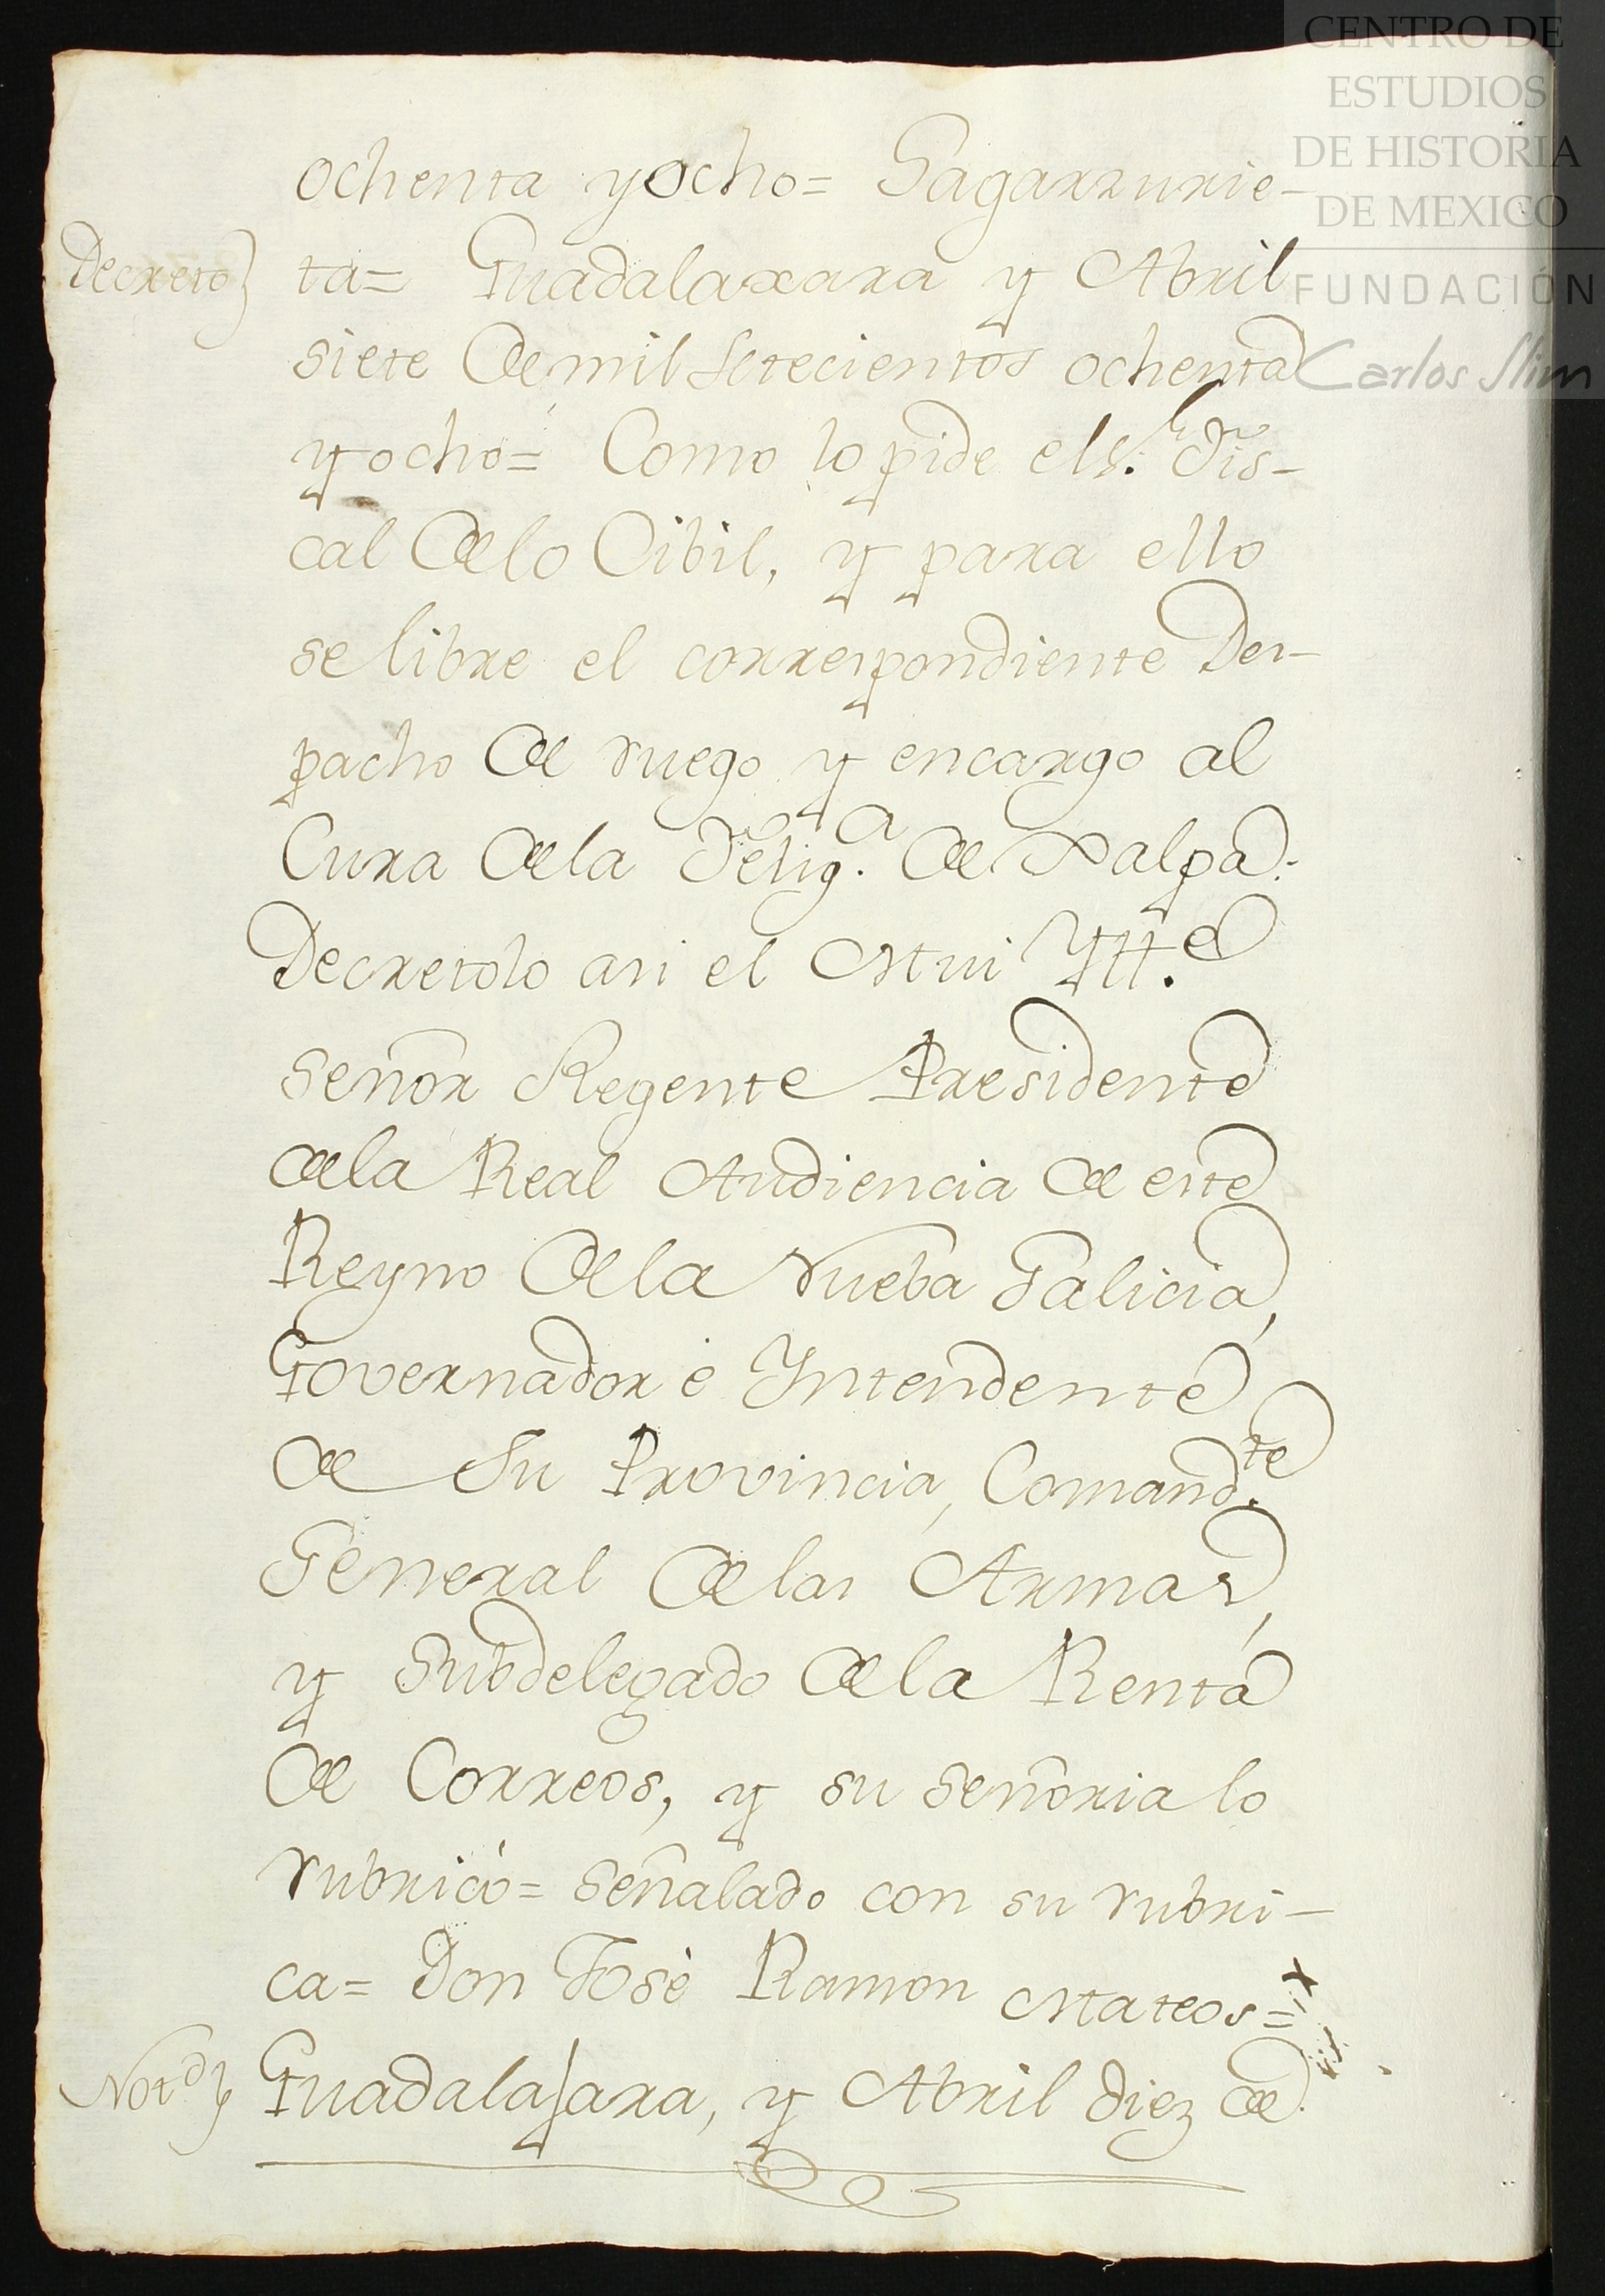 CENTRO DE
ESTUDIOS
DE HISTORIA
DE MEXICO
FUNDACIÓN
Carlos Slim
ochenta y ocho= Sagarzurie-
Decreto
ta= Guadalaxara y Abril
siete de mil Setecientos ochenta
y ocho= Como lo pide el s.r Fis-
cal de lo Cibil, y para ello
se libre el correspondiente Des-
pacho de ruego y encargo al
Cura de la Felig.a de Xalpa.
Decretolo asi el Mui Ytt.e
señor Regente Presidente
de la Real Audiencia de este
Reyno de la Nueba Galicia,
Governador è Yntendente
de Su Provincia, Comand.te
General de las Armas,
y Subdelegado de la Renta
de Correos, y su señoria lo
rubricó= señalado con su rubri-
ca= Don Josè Ramon Mateos=
Guadalajara, y Abril diez de